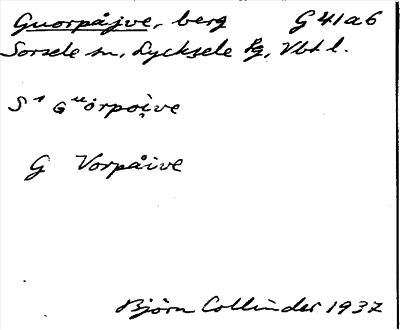 Guorpåjve, berg G 41 a 6
Sorsele sn, Lycksele lg, Vbt l.
S¹ Gᵘ̯örpọi̯ve
G Vorpåive
Björn Collinder 1937